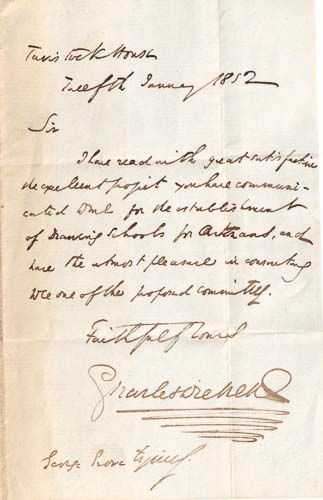 Tavistock House
Twelfth January 1852
Sir
I have read with great satisfaction
the excellent project you have communi-
cated to me for the establishment
of Drawing Schools for Artizans, and
have the utmost pleasure in consenting
to be one of the proposed committee.
Faithfully Yours
Charles Dickens
George Grove Esquire.